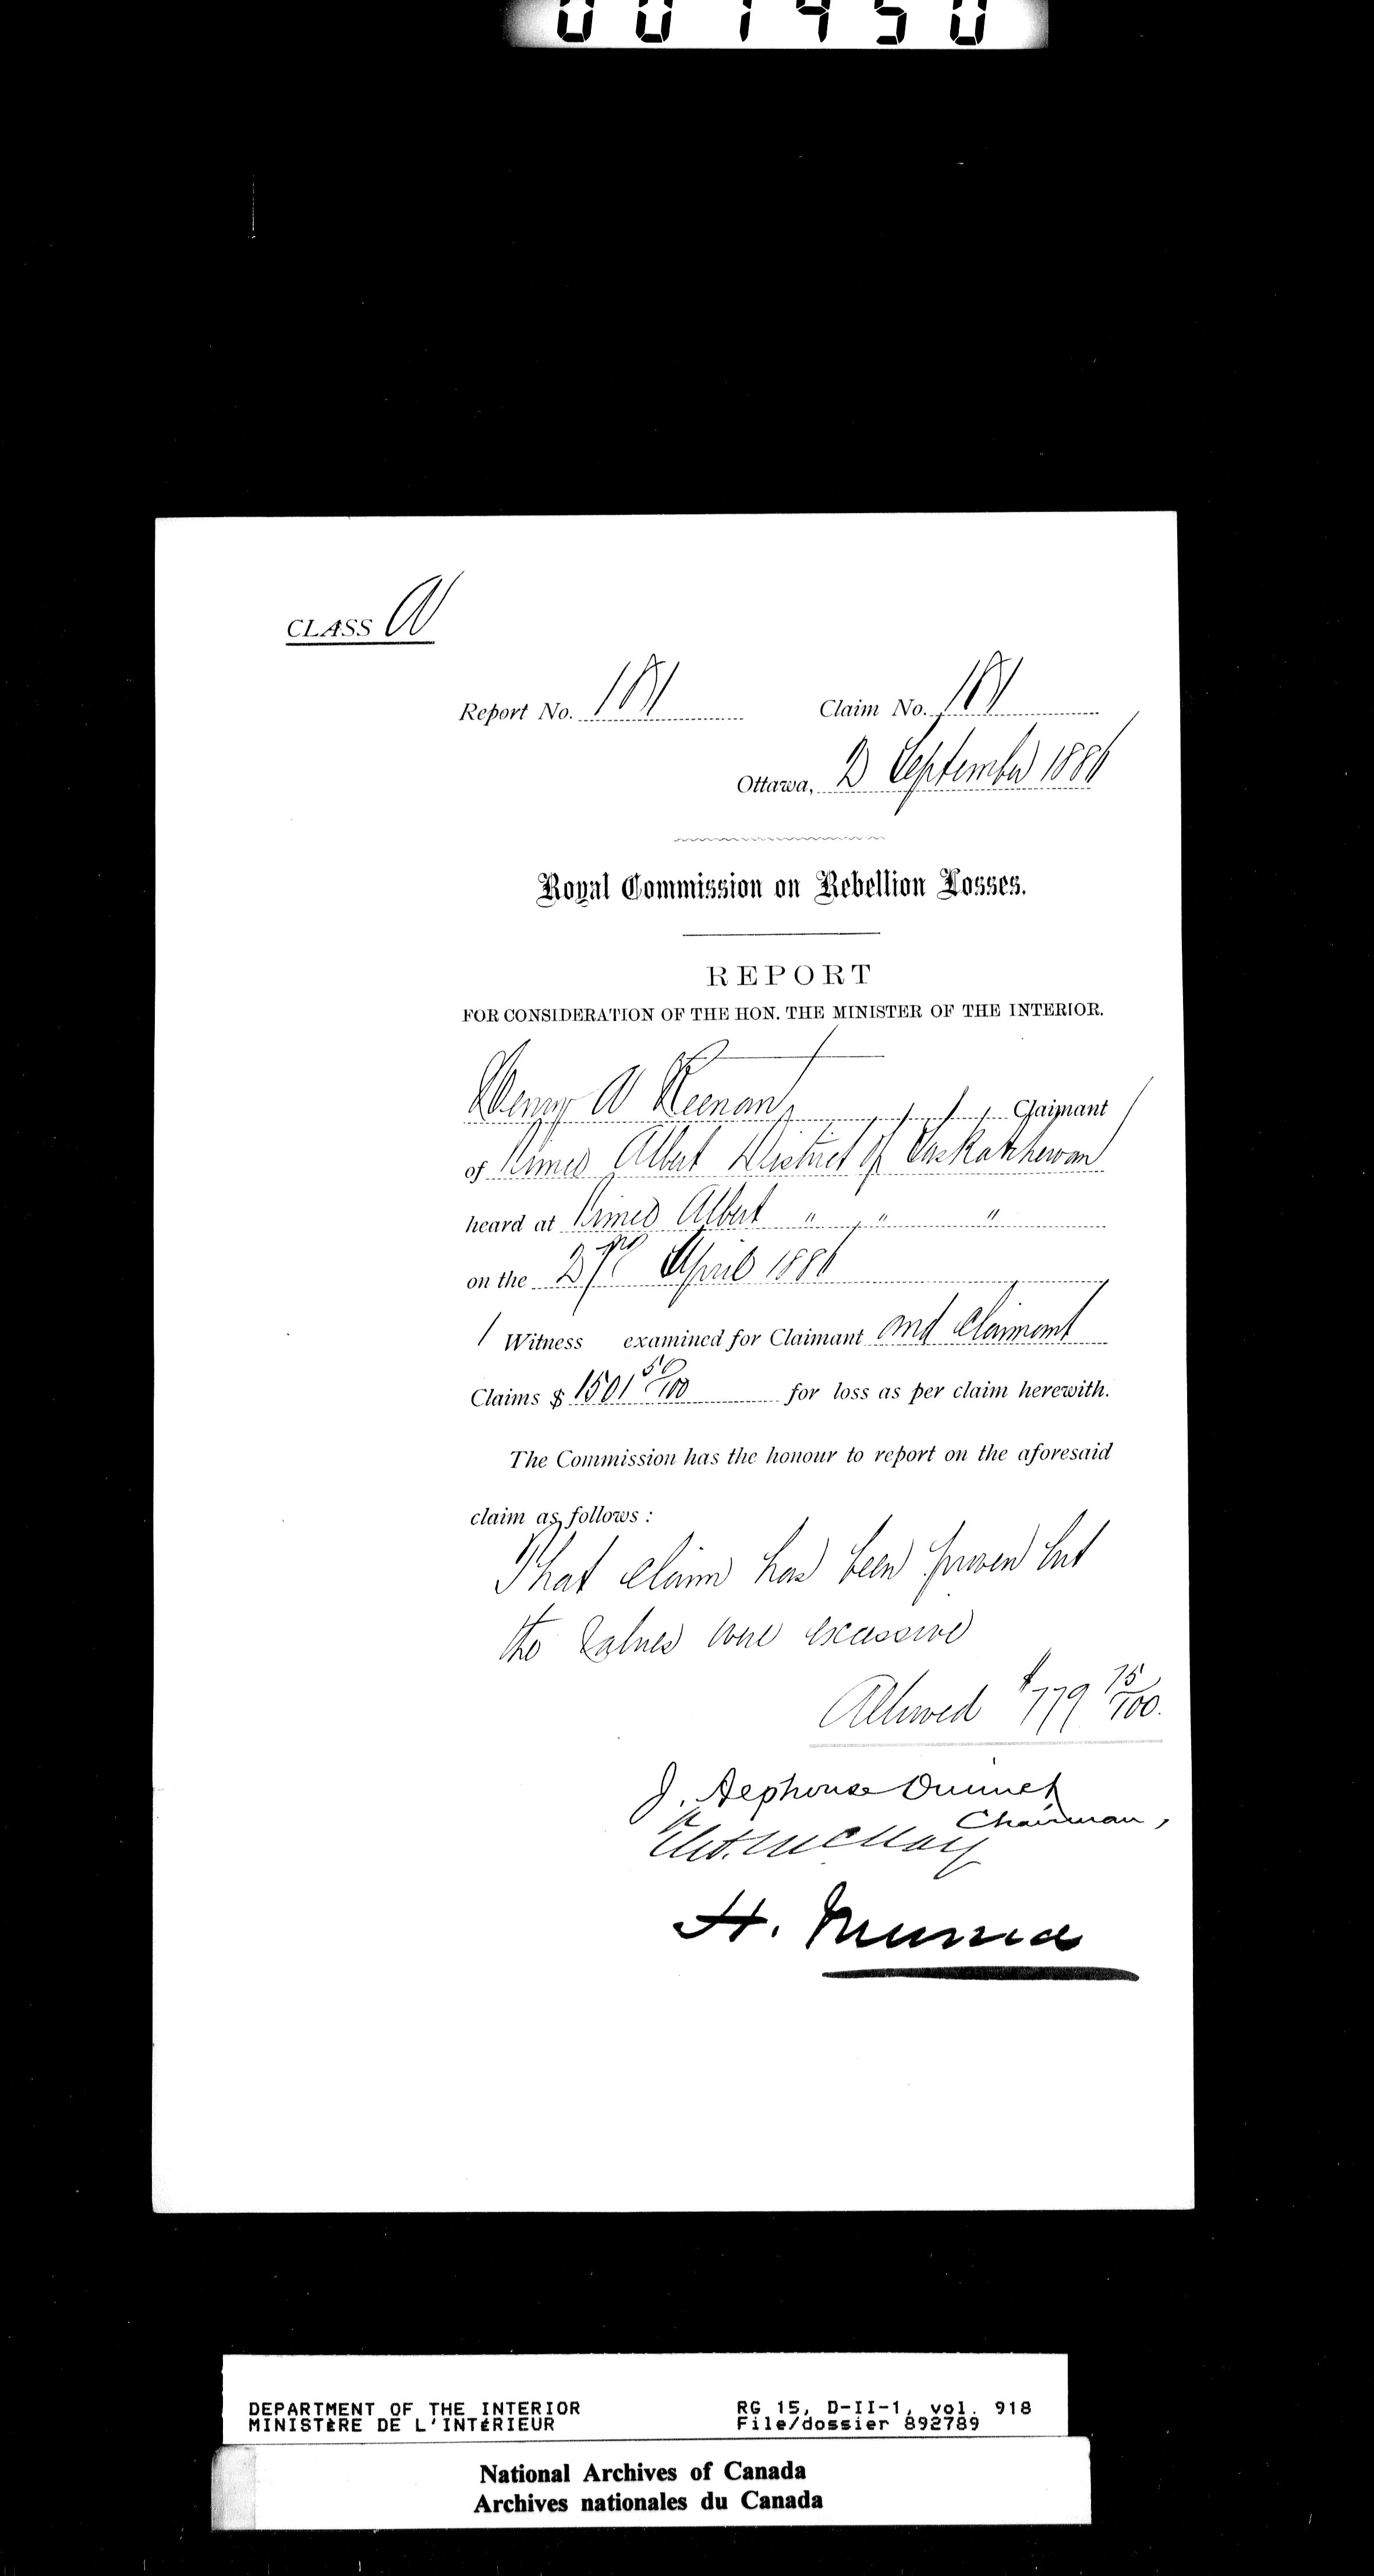 001450
CLASS A
Report No. 181 Claim No. 181
Ottawa, 2 September 1886
Royal Commission on Rebellion Losses.
REPORT
FOR CONSIDERATION OF THE HON. THE MINISTER OF THE INTERIOR.
Henry A Keenan Claimant
of Prince Albert District of Saskatchewan
heard at Prince Albert " " "
on the April 1886
1 Witness examined for Claimant and claimant
Claims $ 1501 50/100 for loss as per claim herewith.
The Commission has the honour to report on the aforesaid
claim as follows :
That claim has been proven but
the values were excessive
Allowed $779 75/100.
J. Alphonse Ouimet
Chairman,
McKay
H. Muma
DEPARTMENT OF THE INTERIOR RG 15, D-II-1, vol. 918
MINISTÈRE DE L'INTÉRIEUR File/dossier 892789
National Archives of Canada
Archives nationales du Canada